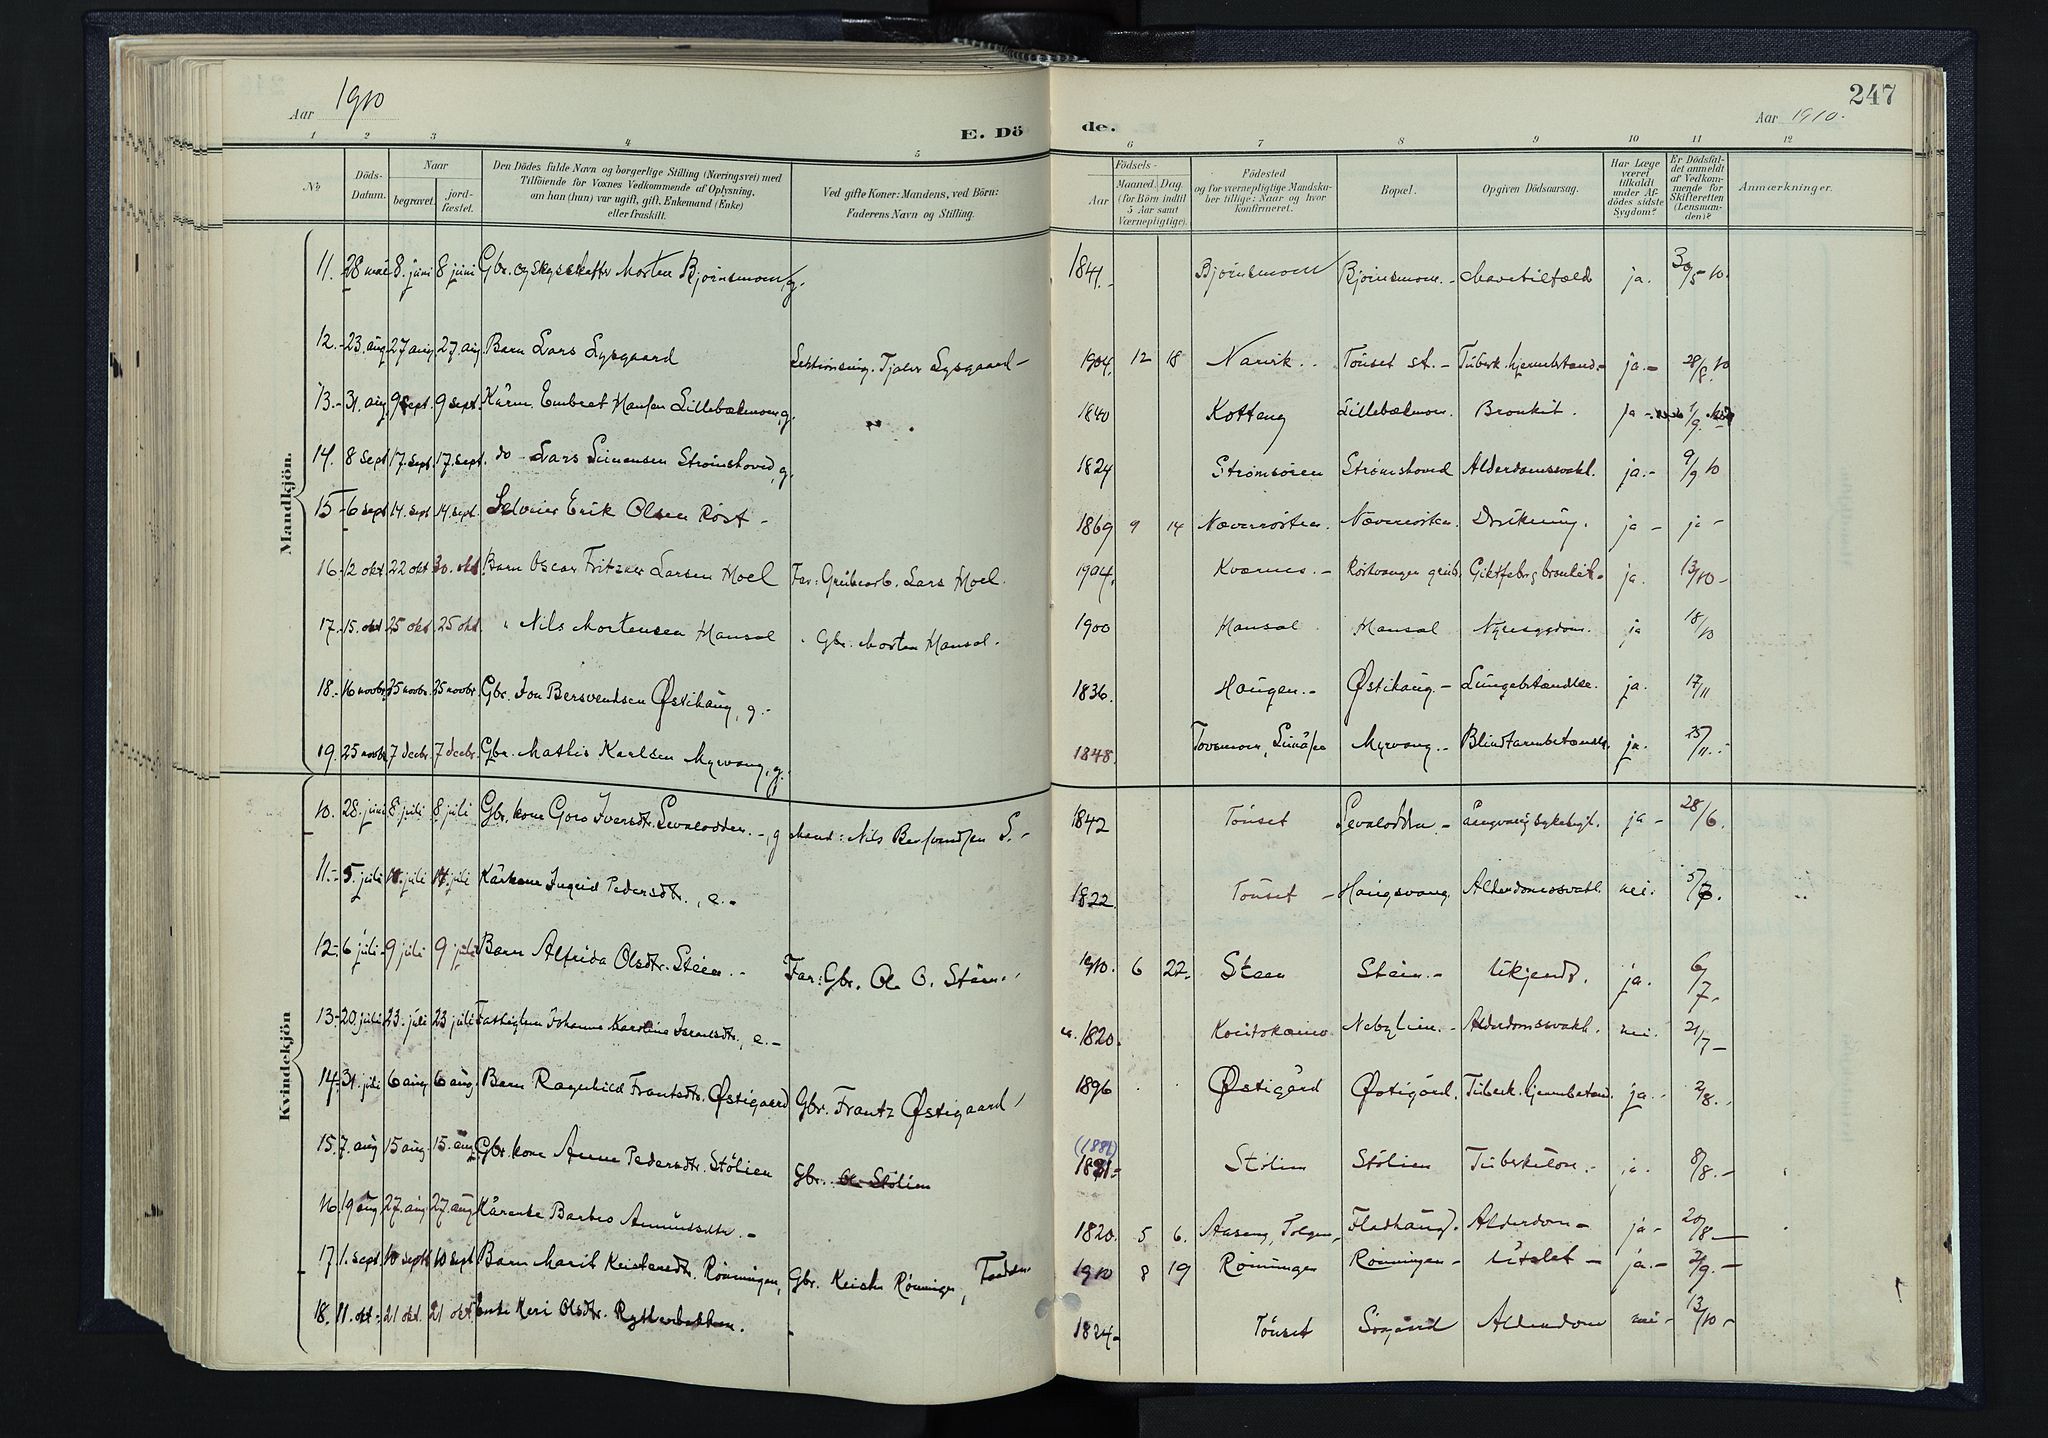 Aar 1910
E. Dö de.
247
Aar 1910.
1 2 3 4 5 6 7 8 9 10 11 12
No
Döds-Datum.
Naar
begravet.
jord-fæstet.
Den Dödes fulde Navn og borgerlige Stilling (Næringsvei) med
Tilföiende for Voxnes Vedkommende af Oplysning,
om han (hun) var ugift, gift, Enkemand (Enke)
eller fraskilt.
Ved gifte Koner: Mandens, ved Börn:
Faderens Navn og Stilling.
Födsels-
Aar
Maaned. Dag
(for Börn indtil
5 Aar samt
Værnepligtige).
Födested
og for værnepligtige Mandska-
ber tillige: Naar og hvor
konfirmeret.
Bopæl.
Opgiven Dödsaarsag.
Har Læge
været
tilkaldt
under Af-
dödes sidste
Sygdom?
Er Dödsfal-
det anmeldt
af Vedkom-
mende for
Skifteretten
(Lensman-
den)?
Anmærkninger.
Mandkjön.
11. 28 mai 8. juni 8 juni Gbr. og skysskaffer Morten Bjørnsmoen, g. 1841. Bjørnsmoen Bjørnsmoen. Mavetilfæld ja. 30/5 10.
12. 23. aug 27 aug 27. aug Barn Lars Lysgaard Tjalve Lysgaard 1904. 12 18 Narvik Tönset st. Tuberk. hjernebetænd. ja. 28/8. 10
13. 31. aug. 9 sept. 9 sept. Embret Hansen Lillebækmoen, g. 1840 Kottang Lillebækmoen. Bronkit. ja 1/9.
14. 8 sept 17. sept 17. sept. do Lars Simensen Strømshoved, g. 1824 Strømsøien Strømshoved Alderdomssvakh. ja. 9/9 10
15 6 sept 14. sept 14. sept. Selveier Erik Olsen Røst 1869 9 14 Næverrösten. Næverrösten. Drukning. ja ja
16. 12 okt. 22 okt 30. okt. Barn Oscar Fritzner Larsen Moel Far: Grubearb. Lars Moel. 1904. Kværnes. Röstvangen grube. Giktfeber og bronkit. ja. 13/10
17. 15. okt 25 okt 25 okt. " Nils Mortensen Hansal " Gbr. Morten Hansal. 1900 Hansal Hansal Nyresygdom. ja 18/10
18. 16 novbr. 25 novbr. 25 novbr. Gbr. Jon Bersvendsen Østihaug, g. 1836. Haugen. Østihaug. Lungebetændelse. ja. 17/11
19. 25 novbr. 7 decbr. 7 decbr. Gbr. Mathis Karlsen Myrvang, g. 1848. Myrvang. Blindtarmbetændelse ja. 25/11.
Kvindekjön
10. 28. juni 8 juli 8 juli Gbr. kone Goro Iversdtr. Sevalodden, g Mand: Nils Bersvendsen S. 1842 Tönset Sevalodden. Langvarig sykeleje. ja 28/6.
11. 5. juli 11. juli 11. juli Ingrid Pedersdtr., e. 1822. Tönset Haugsvang. Alderdomssvakh. nei. 5/7.
12. 6 juli 9 juli 9 juli Barn Alfrida Olsdtr. Steien. Far: Gbr. Ole O. Steien. 1910. 6 22. Steien Steien. Ukjendt. ja. 6/7.
13. 20. juli 23. juli 23 juli Fattiglem Johanne Karoline Israelsdtr., e. 1820. Koutokeino Nebylien. Alderdomssvakh. nei. 21/7
14. 31. juli 6 aug 6 aug. Barn Ragnhild Frantsdtr. Østigaard Gbr. Frantz Østigaard 1896 Østigård Østigård. Tuberk. hjernebetænd. ja. 2/8.
15. 7. aug 15 aug. 15. aug Gbr. kone Anne Pedersdtr. Stölien Gbr. Ole Stölien (1881) 1871. Stölien Stölien Tuberkulose. ja. 8/8.
16. 19 aug 27. aug 27. aug Kårenke Barbro Amundsdtr. 1820. 5 6. Aaseng, Tolgen, Fladhaug. Alderdom ja 20/8
17. 1. sept. 10 sept 10 sept Barn Marit Keistersdtr. Rönningen, Gbr. Keister Rönningen, Tvedden. 1910 8 19 Rönningen Rönningen Utslet ja. 2/9.
18. 11. okt. 21 okt. 21 okt Enke Keri Olsdtr. Rytterbakken. 1824 Tönset Sögård Alderdom nei 13/10